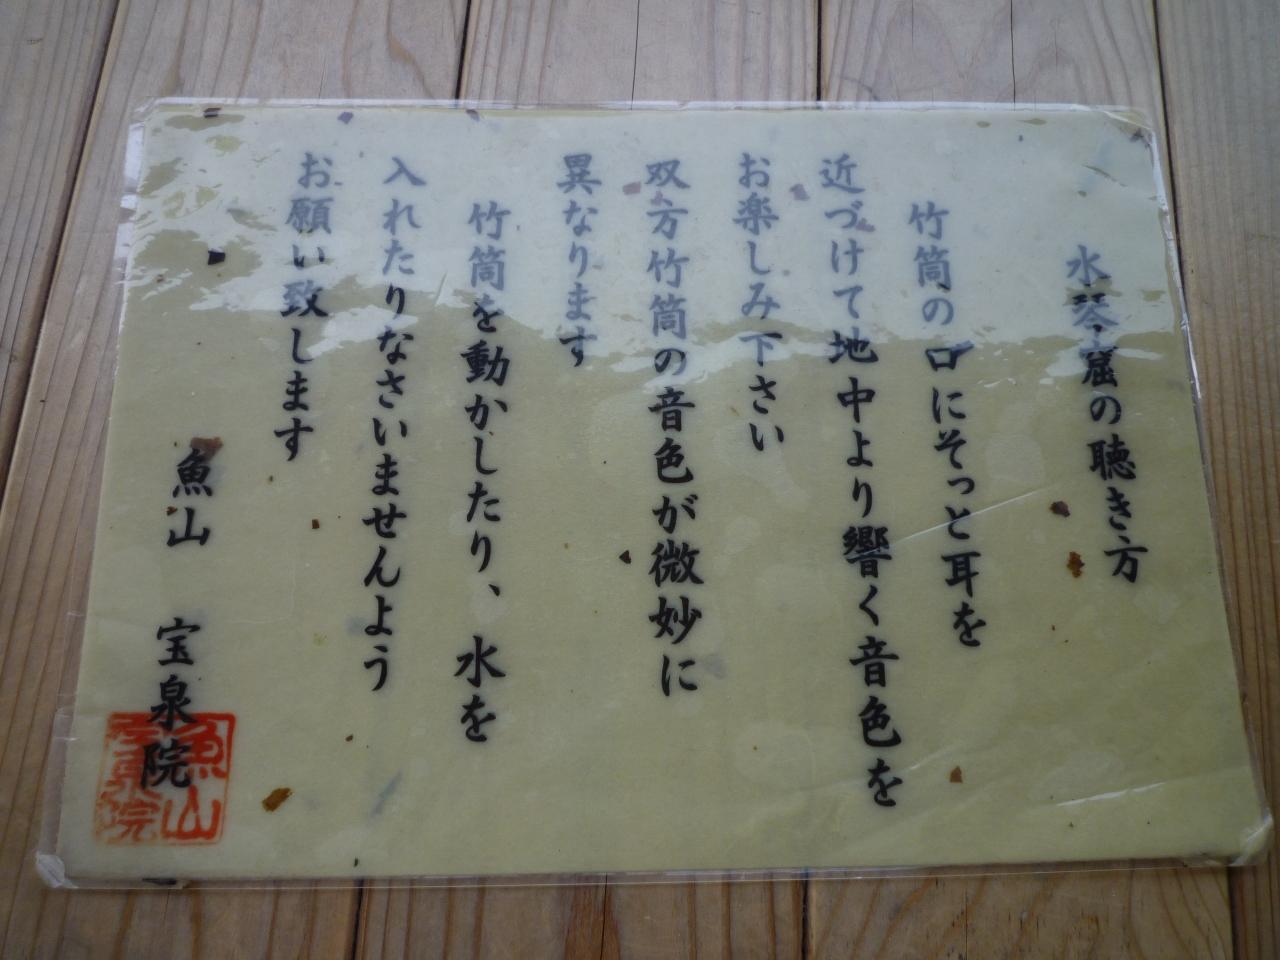 水琴窟の聴き方
竹筒の口にそっと耳を
近づけて地中より響く音色を
お楽しみ下さい
双方竹筒の音色が微妙に
異なります
竹筒を動かしたり、水を
入れたりなさいませんよう
お願い致します
魚山 宝泉院
魚山
宝泉院